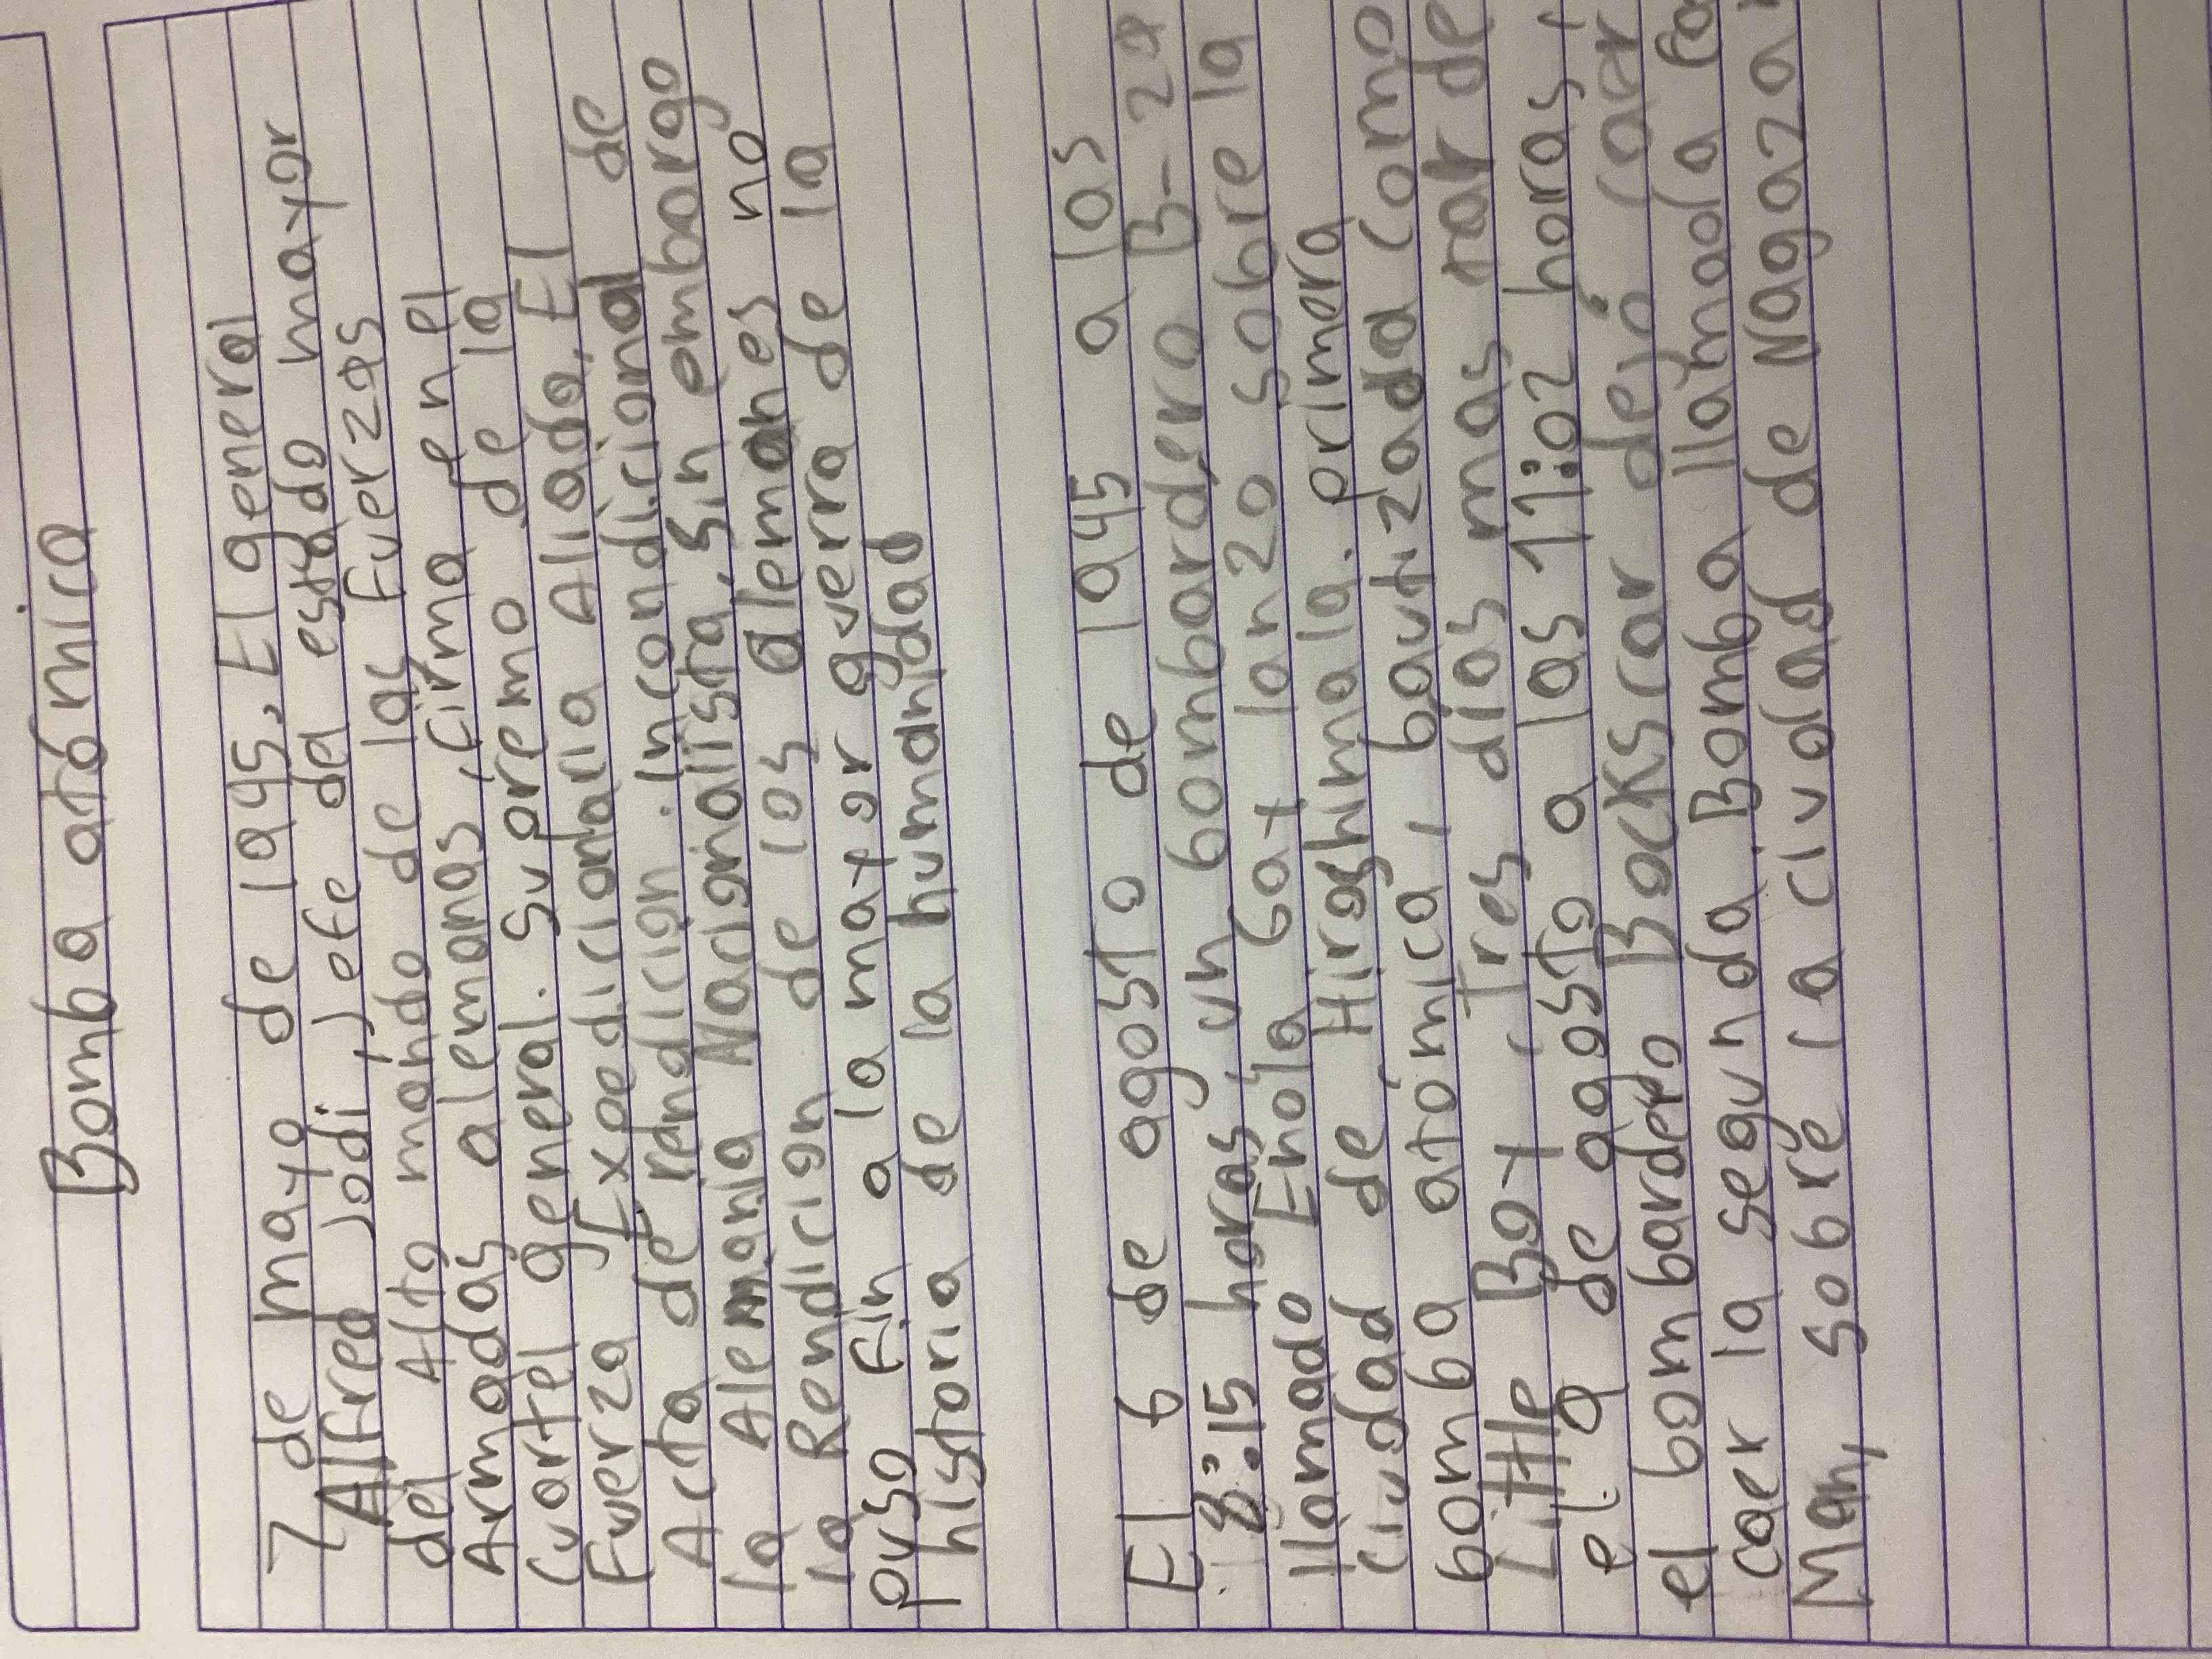 Bomba atómica
7 de mayo de 1945, El general
Alfred Jodi, Jefe del estado mayor
del Alto mando de las Fuerzas
Armadas alemanas, firma en el
Cuartel general. Supremo de la
Fuerza Expedicionaria Aliada. El
Acta de rendición incondicional de
la Alemania Nacionalista, sin embargo
la Rendición de los alemanes no
puso fin a la mayor guerra de la
historia de la humanidad
El 6 de agosto de 1945 a las
8:15 horas un bombardero B-29
llamado Enola Gay lanzo sobre la
ciudad de Hiroshima la primera
bomba atómica, bautizada como
Little Boy, Tres dias mas tar de
el 9 de agosto a las 11:02 horas,
el bombardero Bockscar dejó caer
caer la segunda Bomba llamada Fa
Man, sobre la ciudad de Nagaza